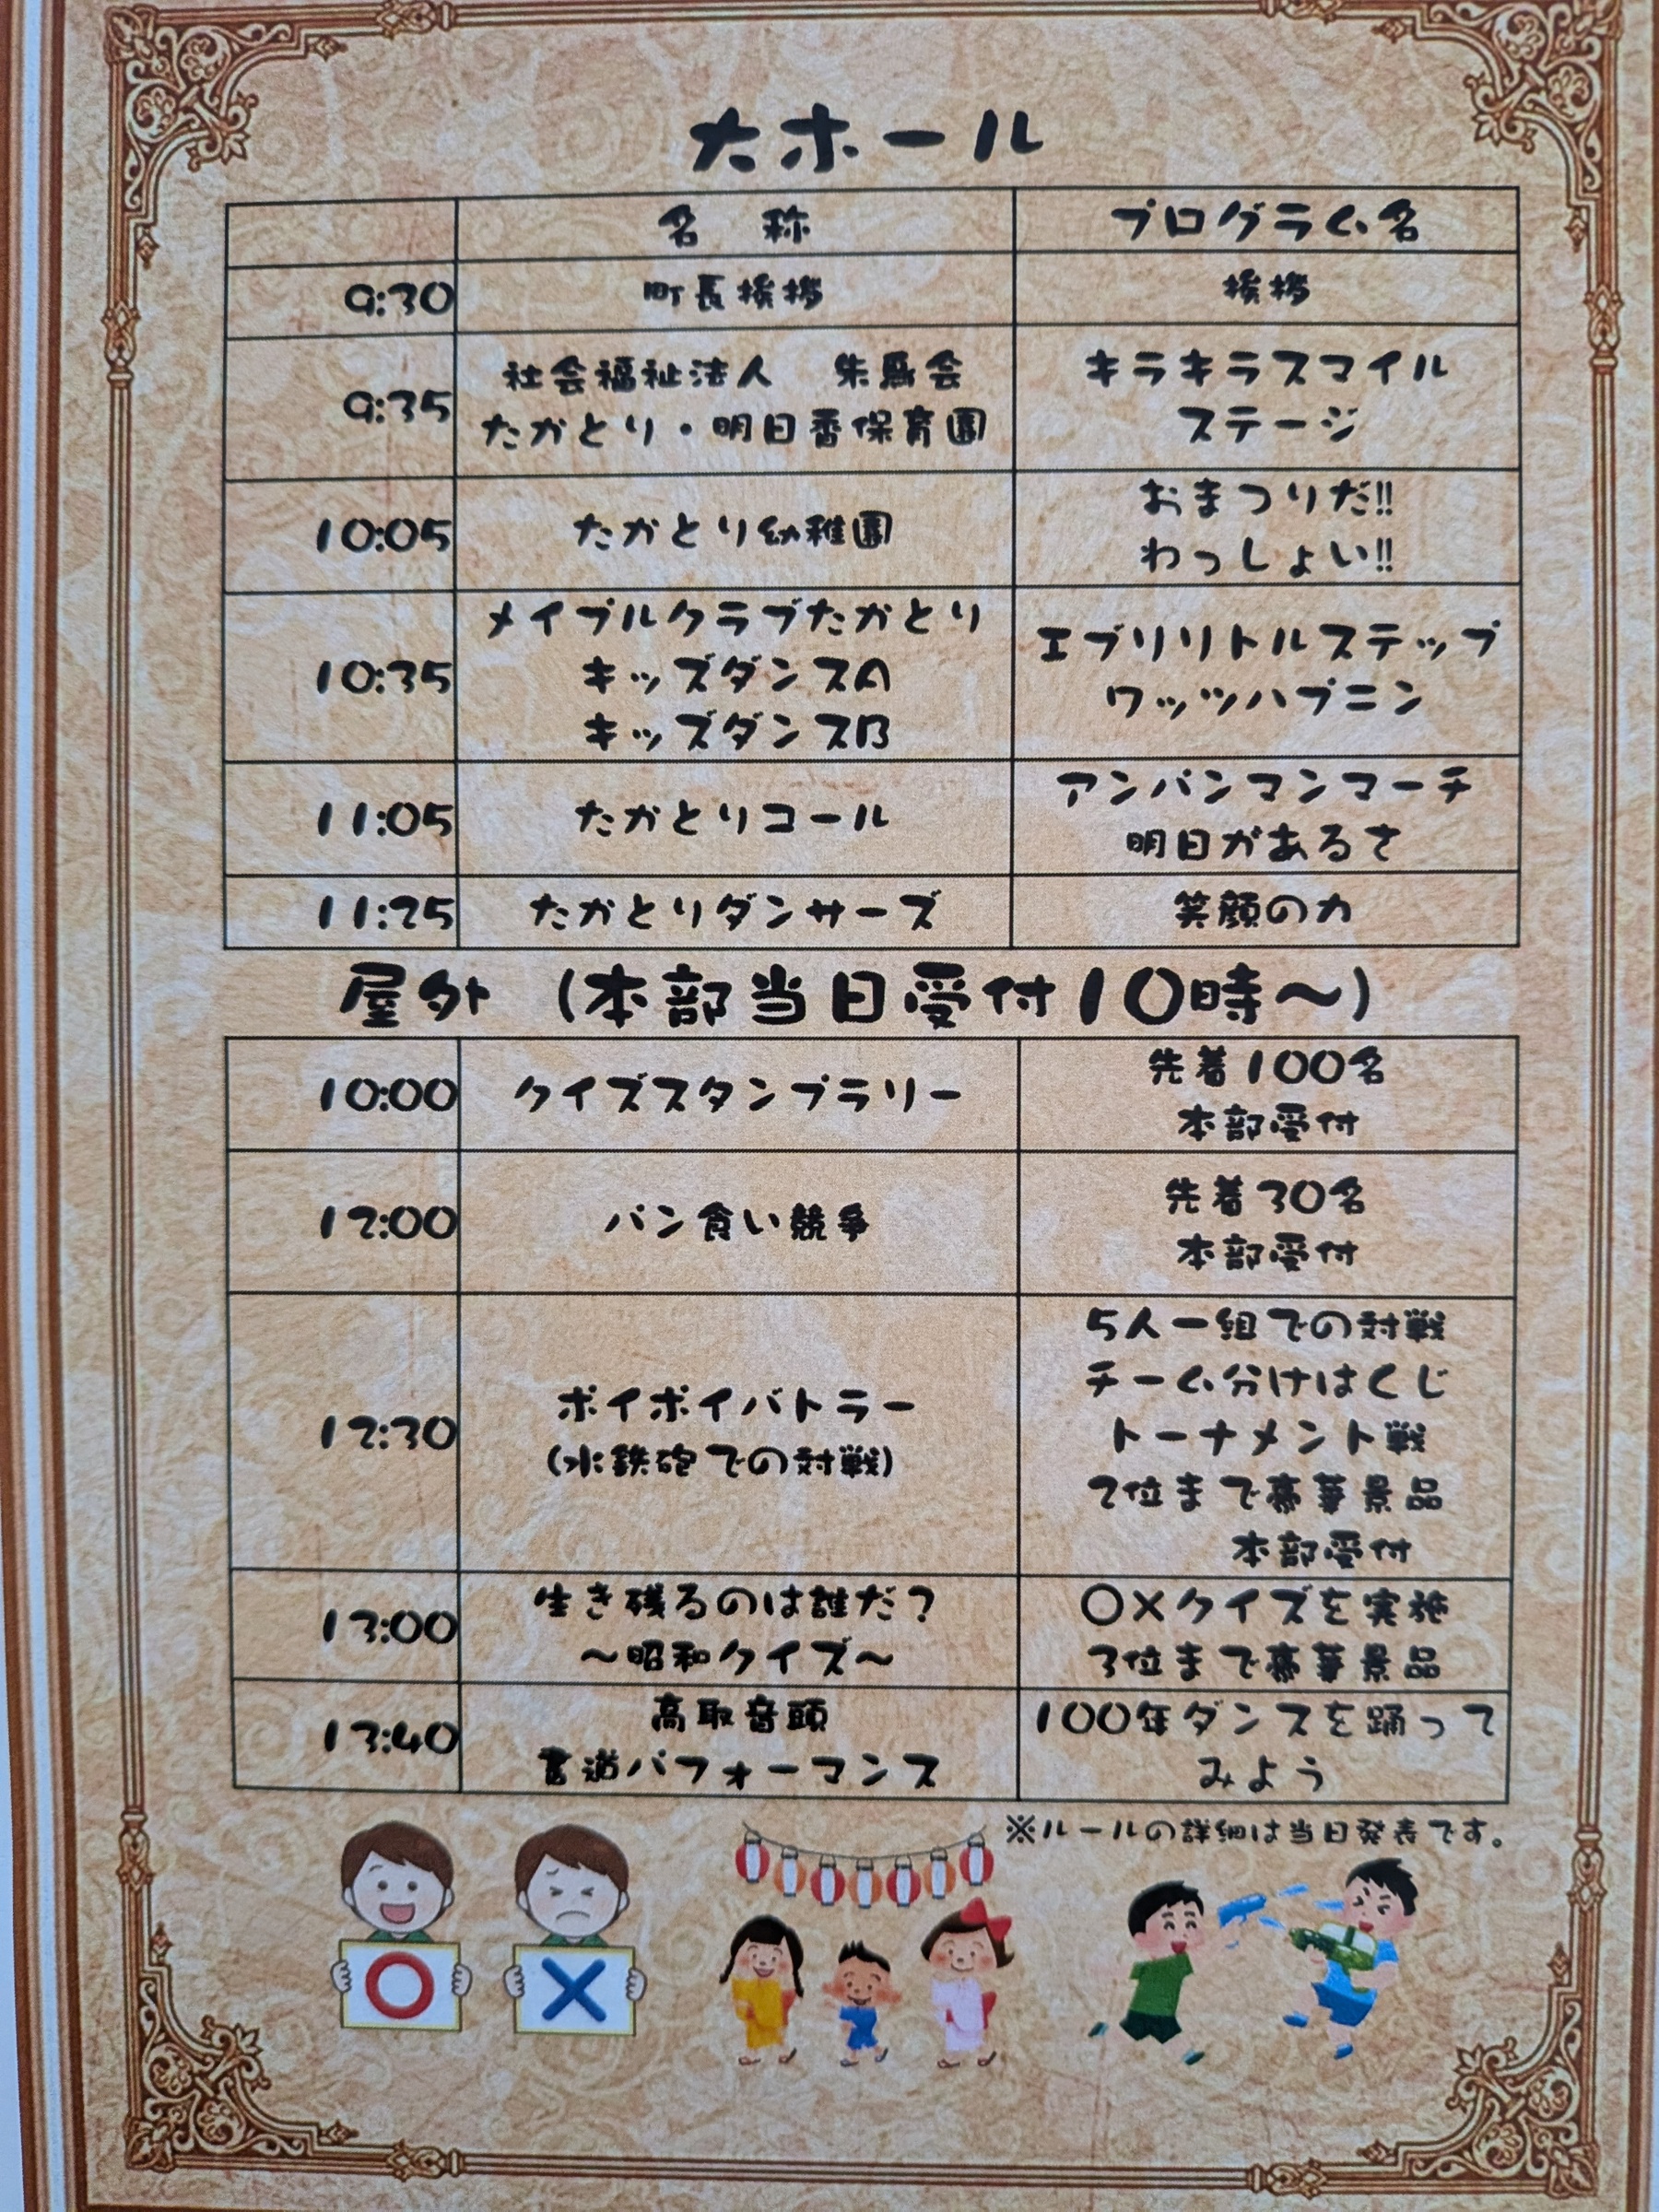 大ホール
名　称　プログラム名
9:30　町長挨拶　挨拶
9:35
社会福祉法人　朱鳥会
たかとり・明日香保育園
キラキラスマイル
ステージ
10:05
たかとり幼稚園
おまつりだ!!
わっしょい!!
10:35
メイプルクラブたかとり
キッズダンスA
キッズダンスB
エブリリトルステップ
ワッツハプニン
11:05
たかとりコール
アンパンマンマーチ
明日があるさ
11:25　たかとりダンサーズ　笑顔の力
屋外　(本部当日受付10時～)
10:00
クイズスタンプラリー
先着100名
本部受付
12:00
パン食い競争
先着30名
本部受付
12:30
ポイポイバトラー
(水鉄砲での対戦)
5人一組での対戦
チーム分けはくじ
トーナメント戦
2位まで豪華景品
本部受付
13:00
生き残るのは誰だ？
～昭和クイズ～
○×クイズを実施
3位まで豪華景品
13:40
高取音頭
書道パフォーマンス
100年ダンスを踊って
みよう
※ルールの詳細は当日発表です。